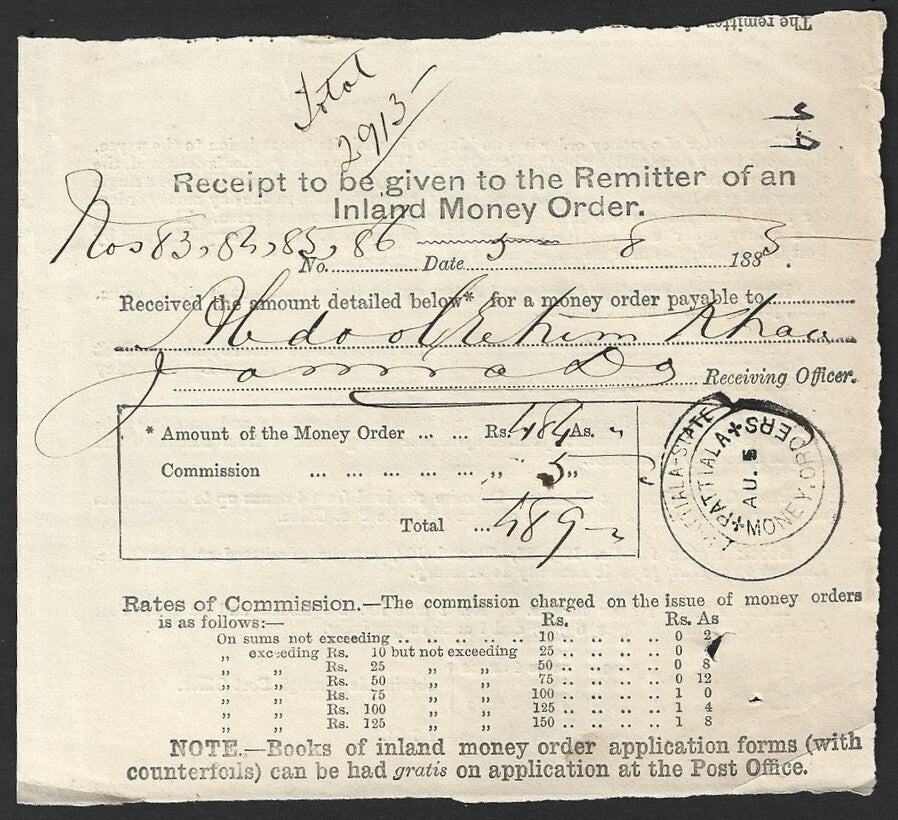 The remitter
Total
2913
Receipt to be given to the Remitter of an
Inland Money Order.
Nos 83, 84, 85, 86
No. Date 5 8 1885.
Received the amount detailed below* for a money order payable to
Abdool Rehim Khan
Receiving Officer.
* Amount of the Money Order ... ... Rs. 484 As. "
Commission ... ... ... ... ,, 5 ,,
Total ... 489 - "
PATTIALA-STATE
PATTIALA MONEY ORDERS
AU. 5
Rates of Commission.—The commission charged on the issue of money orders
is as follows:— Rs. Rs. As
On sums not exceeding .. .. .. .. .. 10 .. .. .. .. 0 2
,, exceeding Rs. 10 but not exceeding 25 .. .. .. .. 0
,, ,, Rs. 25 ,, ,, 50 .. .. .. .. 0 8
,, ,, Rs. 50 ,, ,, 75 .. .. .. .. 0 12
,, ,, Rs. 75 ,, ,, 100 .. .. .. .. 1 0
,, ,, Rs. 100 ,, ,, 125 .. .. .. .. 1 4
,, ,, Rs. 125 ,, ,, 150 .. .. .. .. 1 8
NOTE.—Books of inland money order application forms (with
counterfoils) can be had gratis on application at the Post Office.